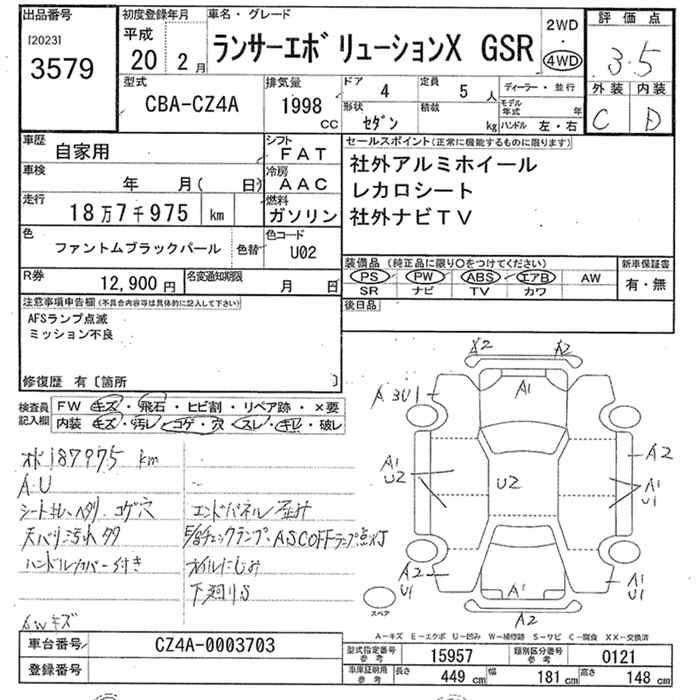 出品番号 初度登録年月 車名・グレード 2WD 評価点
[2023] 平成 ・ 3.5
3579 20 2月 ランサーエボリューションX GSR 4WD
型式 排気量 ドア 4 定員 5 人 ディーラー・並行 外装 内装
CBA-CZ4A 1998 cc 形状 セダン 積載 kg モデル年式 年 C D
ハンドル 左・右
車歴 自家用 シフト FAT セールスポイント(正常に機能するものに限ります)
車検 年 月( 日) 冷房 AAC 社外アルミホイール
走行 18万7千975 km 燃料 ガソリン レカロシート
社外ナビTV
色 ファントムブラックパール 色替 色コード U02
装備品 (純正品に限り○をつけてください) 新車保証書
R券 12,900円 名変通知期限 月 日 PS PW ABS エアB AW 有・無
SR ナビ TV カワ
注意事項申告欄(不具合内容等は具体的に記入して下さい) 後日品
AFSランプ点滅
ミッション不良
修復歴 有〔箇所 〕
検査員記入欄 FW キズ・飛石・ヒビ割・リペア跡・×要
内装 キズ・汚レ・コゲ・穴・スレ・キレ・破レ
X2 A2
A1
A3U1
A1 U2
U2
A2
A1 U1
A2 U1
A1
A1 U1
A2
スペア
オポ187975 km
A.U
シートキレ、ヘタリ、コゲ穴 エンドパネル歪み
天バリ汚れ タタ チェックランプ、ASCOFFランプ点灯
ハンドルカバー付き オイルにじみ
下廻りS
AWキズ
A-キズ E-エクボ U-凹み W-補修跡 S-サビ C-腐食 XX-交換済
車台番号 CZ4A-0003703 型式指定番号 参考 15957 類別区分番号 参考 0121
登録番号 車庫証明用 参考 長さ 449 cm 幅 181 cm 高さ 148 cm